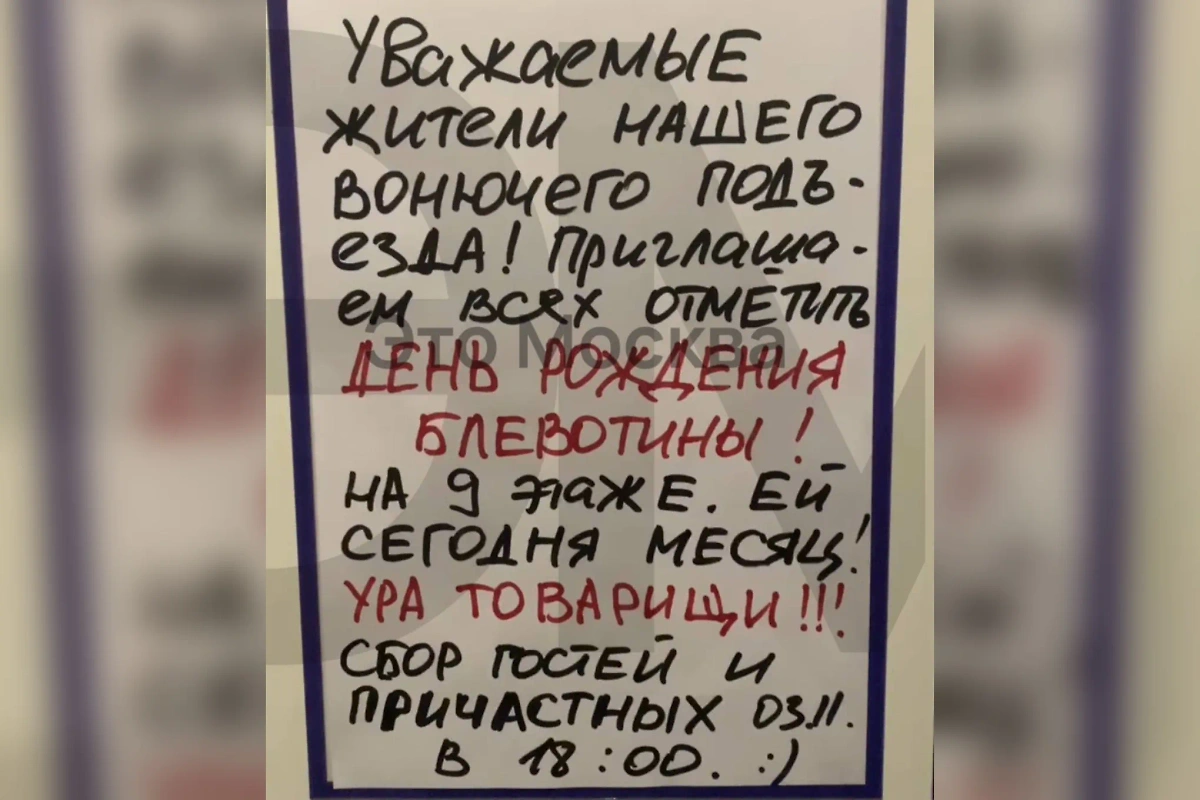 Уважаемые
жители НАШЕГО
вонючего подъ-
езда! Приглаша-
ем всех отметить
Это Москва
ДЕНЬ РОЖДЕНИЯ
БЛЕВОТИНЫ!
НА 9 этаже. Ей
СЕГОДНЯ МЕСЯЦ!
УРА ТОВАРИЩИ!!!
СБОР ГОСТЕЙ И
ПРИЧАСТНЫХ 03.11.
В 18:00. :)